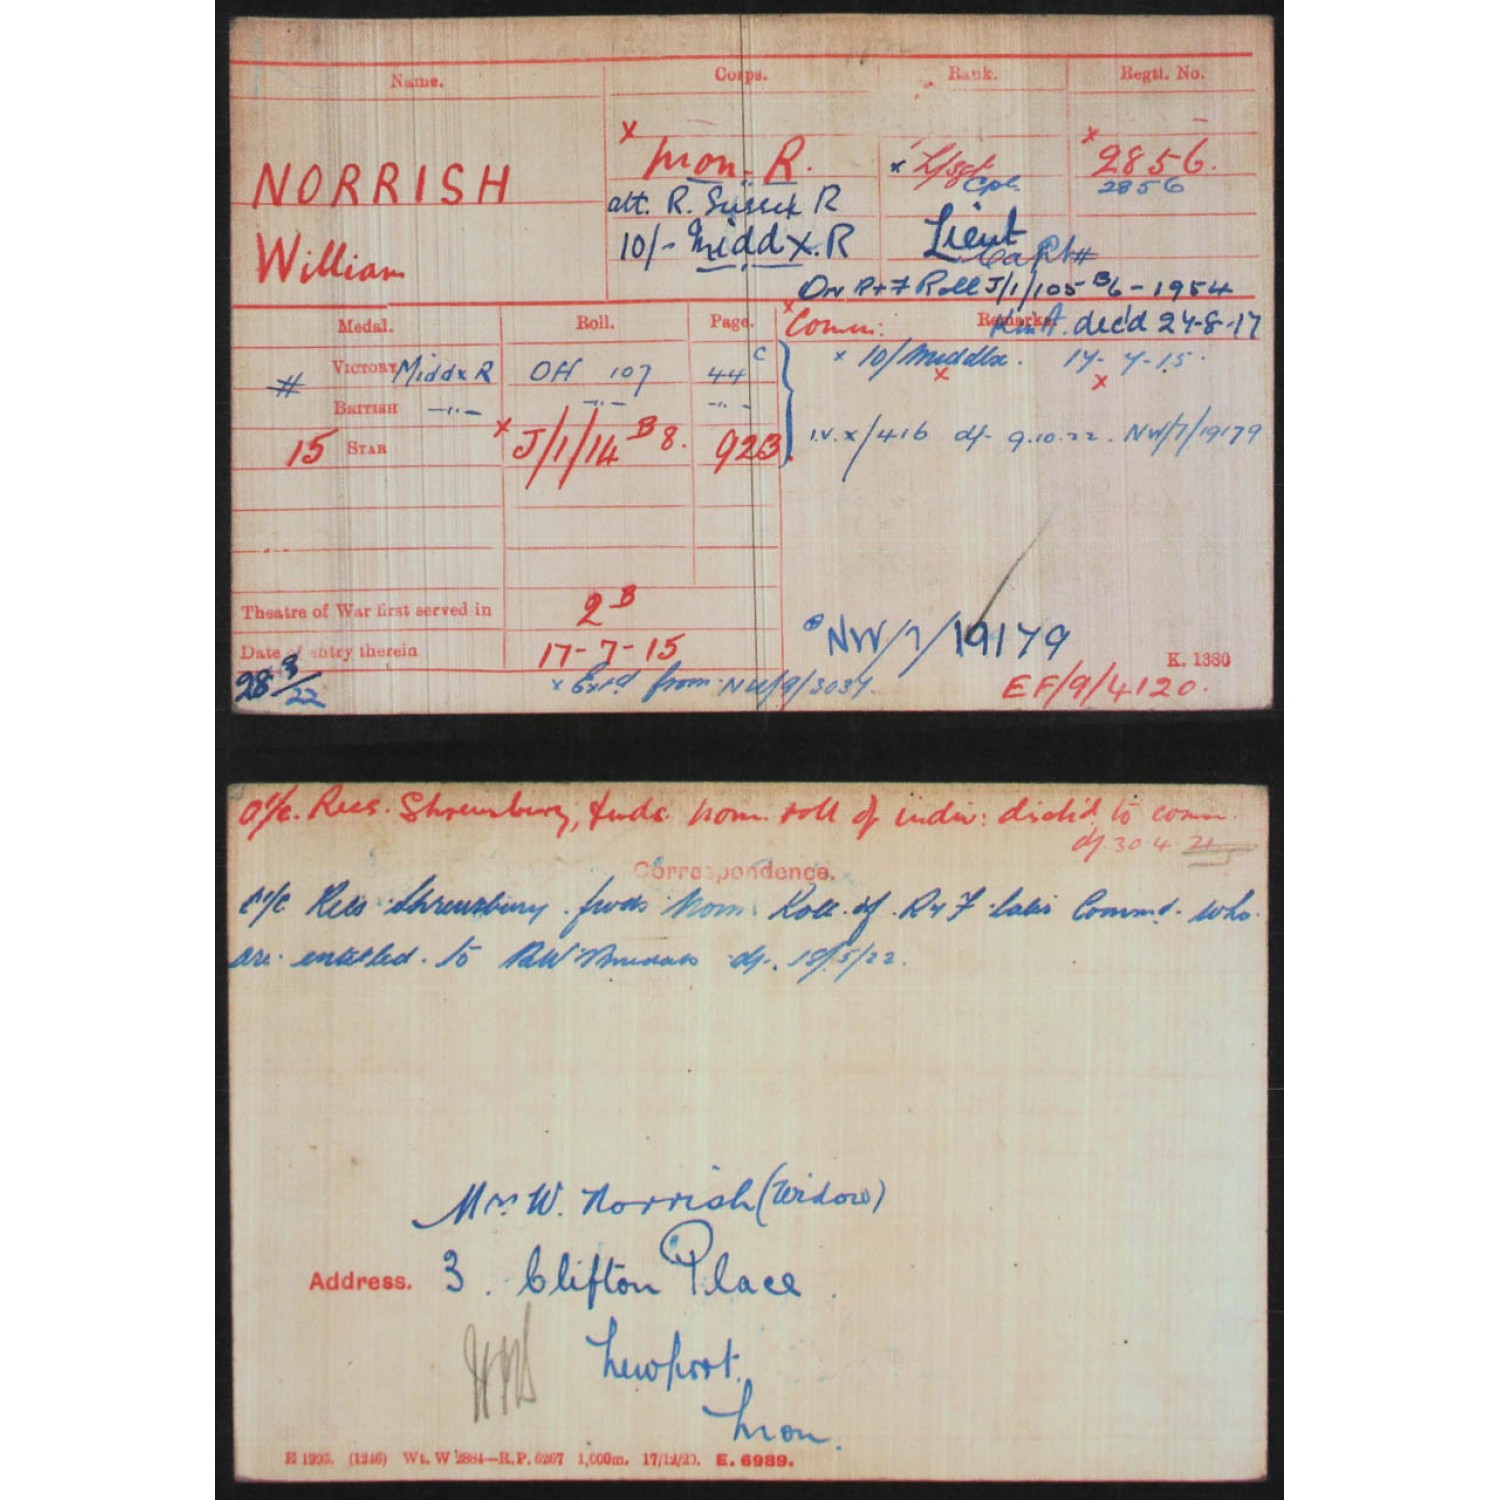 Name. Corps. Rank. Regtl. No.
x x
NORRISH Mon. R. x L/Sgt 2856.
att. R. Sussex R Cpl. 2856
William 10/- Middx. R Lieut
Capt #
On R+F Roll J/1/105 B6 - 1954
Medal. Roll. Page. x Comm: Remarks dec'd 24-8-17
# VICTORY Middx R OH 107 44 C x 10/Middlx. 17-7-15.
BRITISH -"- -"- -"- x x
15 STAR x J/1/14 B 8. 92B. I.V. x/416 d/- 9.10.22. NW/7/19179
Theatre of War first served in 2 B
Date of entry therein 17-7-15 NW/7/19179 K. 1380
28 8/22 x Extd from NW/9/3037. EF/9/4120.
O/c. Recs. Shrewsbury, fwds. nom. roll of indiv: disch'd to comm.
d/. 30.4.21
Correspondence.
O/C Recs Shrewsbury. fwds Nom. Roll. of. R & F later Commd. who.
are. entitled. to BW Medals d/-. 18/5/22.
Mrs W. Norrish (Widow)
Address. 3. Clifton Place.
Newport.
Mon.
E 1995. (1246) Wt. W 2884—R.P. 6267 1,000m. 17/12/20. E. 6989.